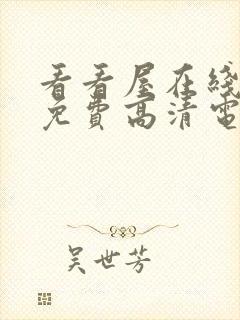 看看屋在线
免費高清電
吴世芳